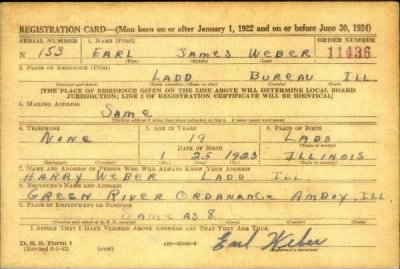 REGISTRATION CARD—(Men born on or after January 1, 1922 and on or before June 30, 1924)
SERIAL NUMBER 1. NAME (Print) ORDER NUMBER
N 153 EARL JAMES WEBER 11436
(First) (Middle) (Last)
2. PLACE OF RESIDENCE (Print)
LADD BUREAU ILL.
(State)
[THE PLACE OF RESIDENCE GIVEN ON THE LINE ABOVE WILL DETERMINE LOCAL BOARD
JURISDICTION; LINE 2 OF REGISTRATION CERTIFICATE WILL BE IDENTICAL]
3. MAILING ADDRESS
SAME
[Mailing address if other than place indicated on line 2. If same insert word same]
4. TELEPHONE 5. AGE IN YEARS 6. PLACE OF BIRTH
NONE 19 LADD
DATE OF BIRTH
1 25 1923 ILLINOIS
(Exchange) (Number) (Mo.) (Day) (Yr.)
7. NAME AND ADDRESS OF PERSON WHO WILL ALWAYS KNOW YOUR ADDRESS
HARRY WEBER LADD ILL.
8. EMPLOYER'S NAME AND ADDRESS
GREEN RIVER ORDANANCE AMBOY, ILL.
9. PLACE OF EMPLOYMENT OR BUSINESS
SAME AS 8
I AFFIRM THAT I HAVE VERIFIED ABOVE ANSWERS AND THAT THEY ARE TRUE.
D. S. S. Form 1
Earl Weber